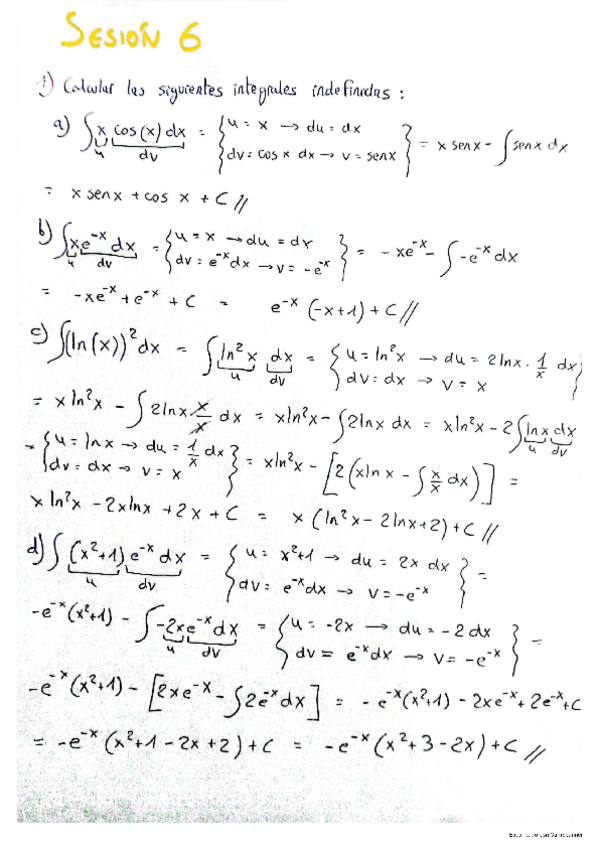 SESIÓN 6
1) Calcular las siguientes integrales indefinidas:
a) ∫ x cos(x) dx = { u = x → du = dx
dv = cos x dx → v = senx } = x senx - ∫ senx dx
u dv
= x senx + cos x + C //
b) ∫ x e^-x dx = { u = x → du = dx
dv = e^-x dx → v = -e^-x } = - xe^-x - ∫ -e^-x dx
u dv
= -xe^-x + e^-x + C = e^-x (-x+1) + C //
c) ∫ (ln(x))^2 dx = ∫ ln^2 x dx = { u = ln^2 x → du = 2lnx · 1/x dx
dv = dx → v = x }
u dv
= x ln^2 x - ∫ 2lnx x/x dx = xln^2 x - ∫ 2lnx dx = xln^2 x - 2 ∫ lnx dx
u dv
= { u = lnx → du = 1/x dx
dv = dx → v = x } = xln^2 x - [2(xln x - ∫ x/x dx)] =
x ln^2 x - 2xlnx + 2x + C = x (ln^2 x - 2lnx+2) + C //
d) ∫ (x^2+1) e^-x dx = { u = x^2+1 → du = 2x dx
dv = e^-x dx → v = -e^-x } =
u dv
-e^-x (x^2+1) - ∫ -2xe^-x dx = { u = -2x → du = -2 dx
dv = e^-x dx → v = -e^-x } =
u dv
-e^-x (x^2+1) - [2xe^-x - ∫ 2e^-x dx] = - e^-x (x^2+1) - 2xe^-x + 2e^-x + C
= -e^-x (x^2+1 - 2x + 2) + C = -e^-x (x^2+3 - 2x) + C //